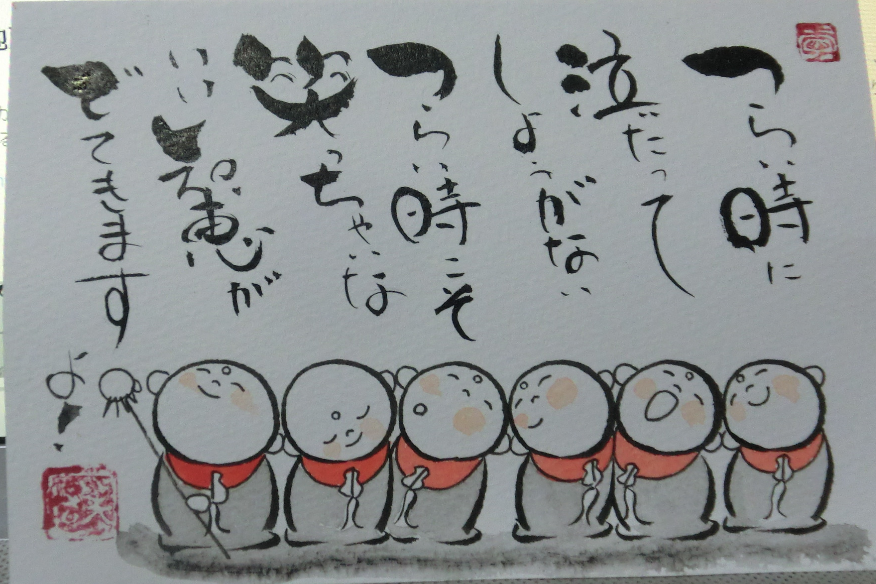 つらい時に
泣だって
しょうがない
つらい時こそ
笑っちゃいな
いい知恵が
でてきます
よ!